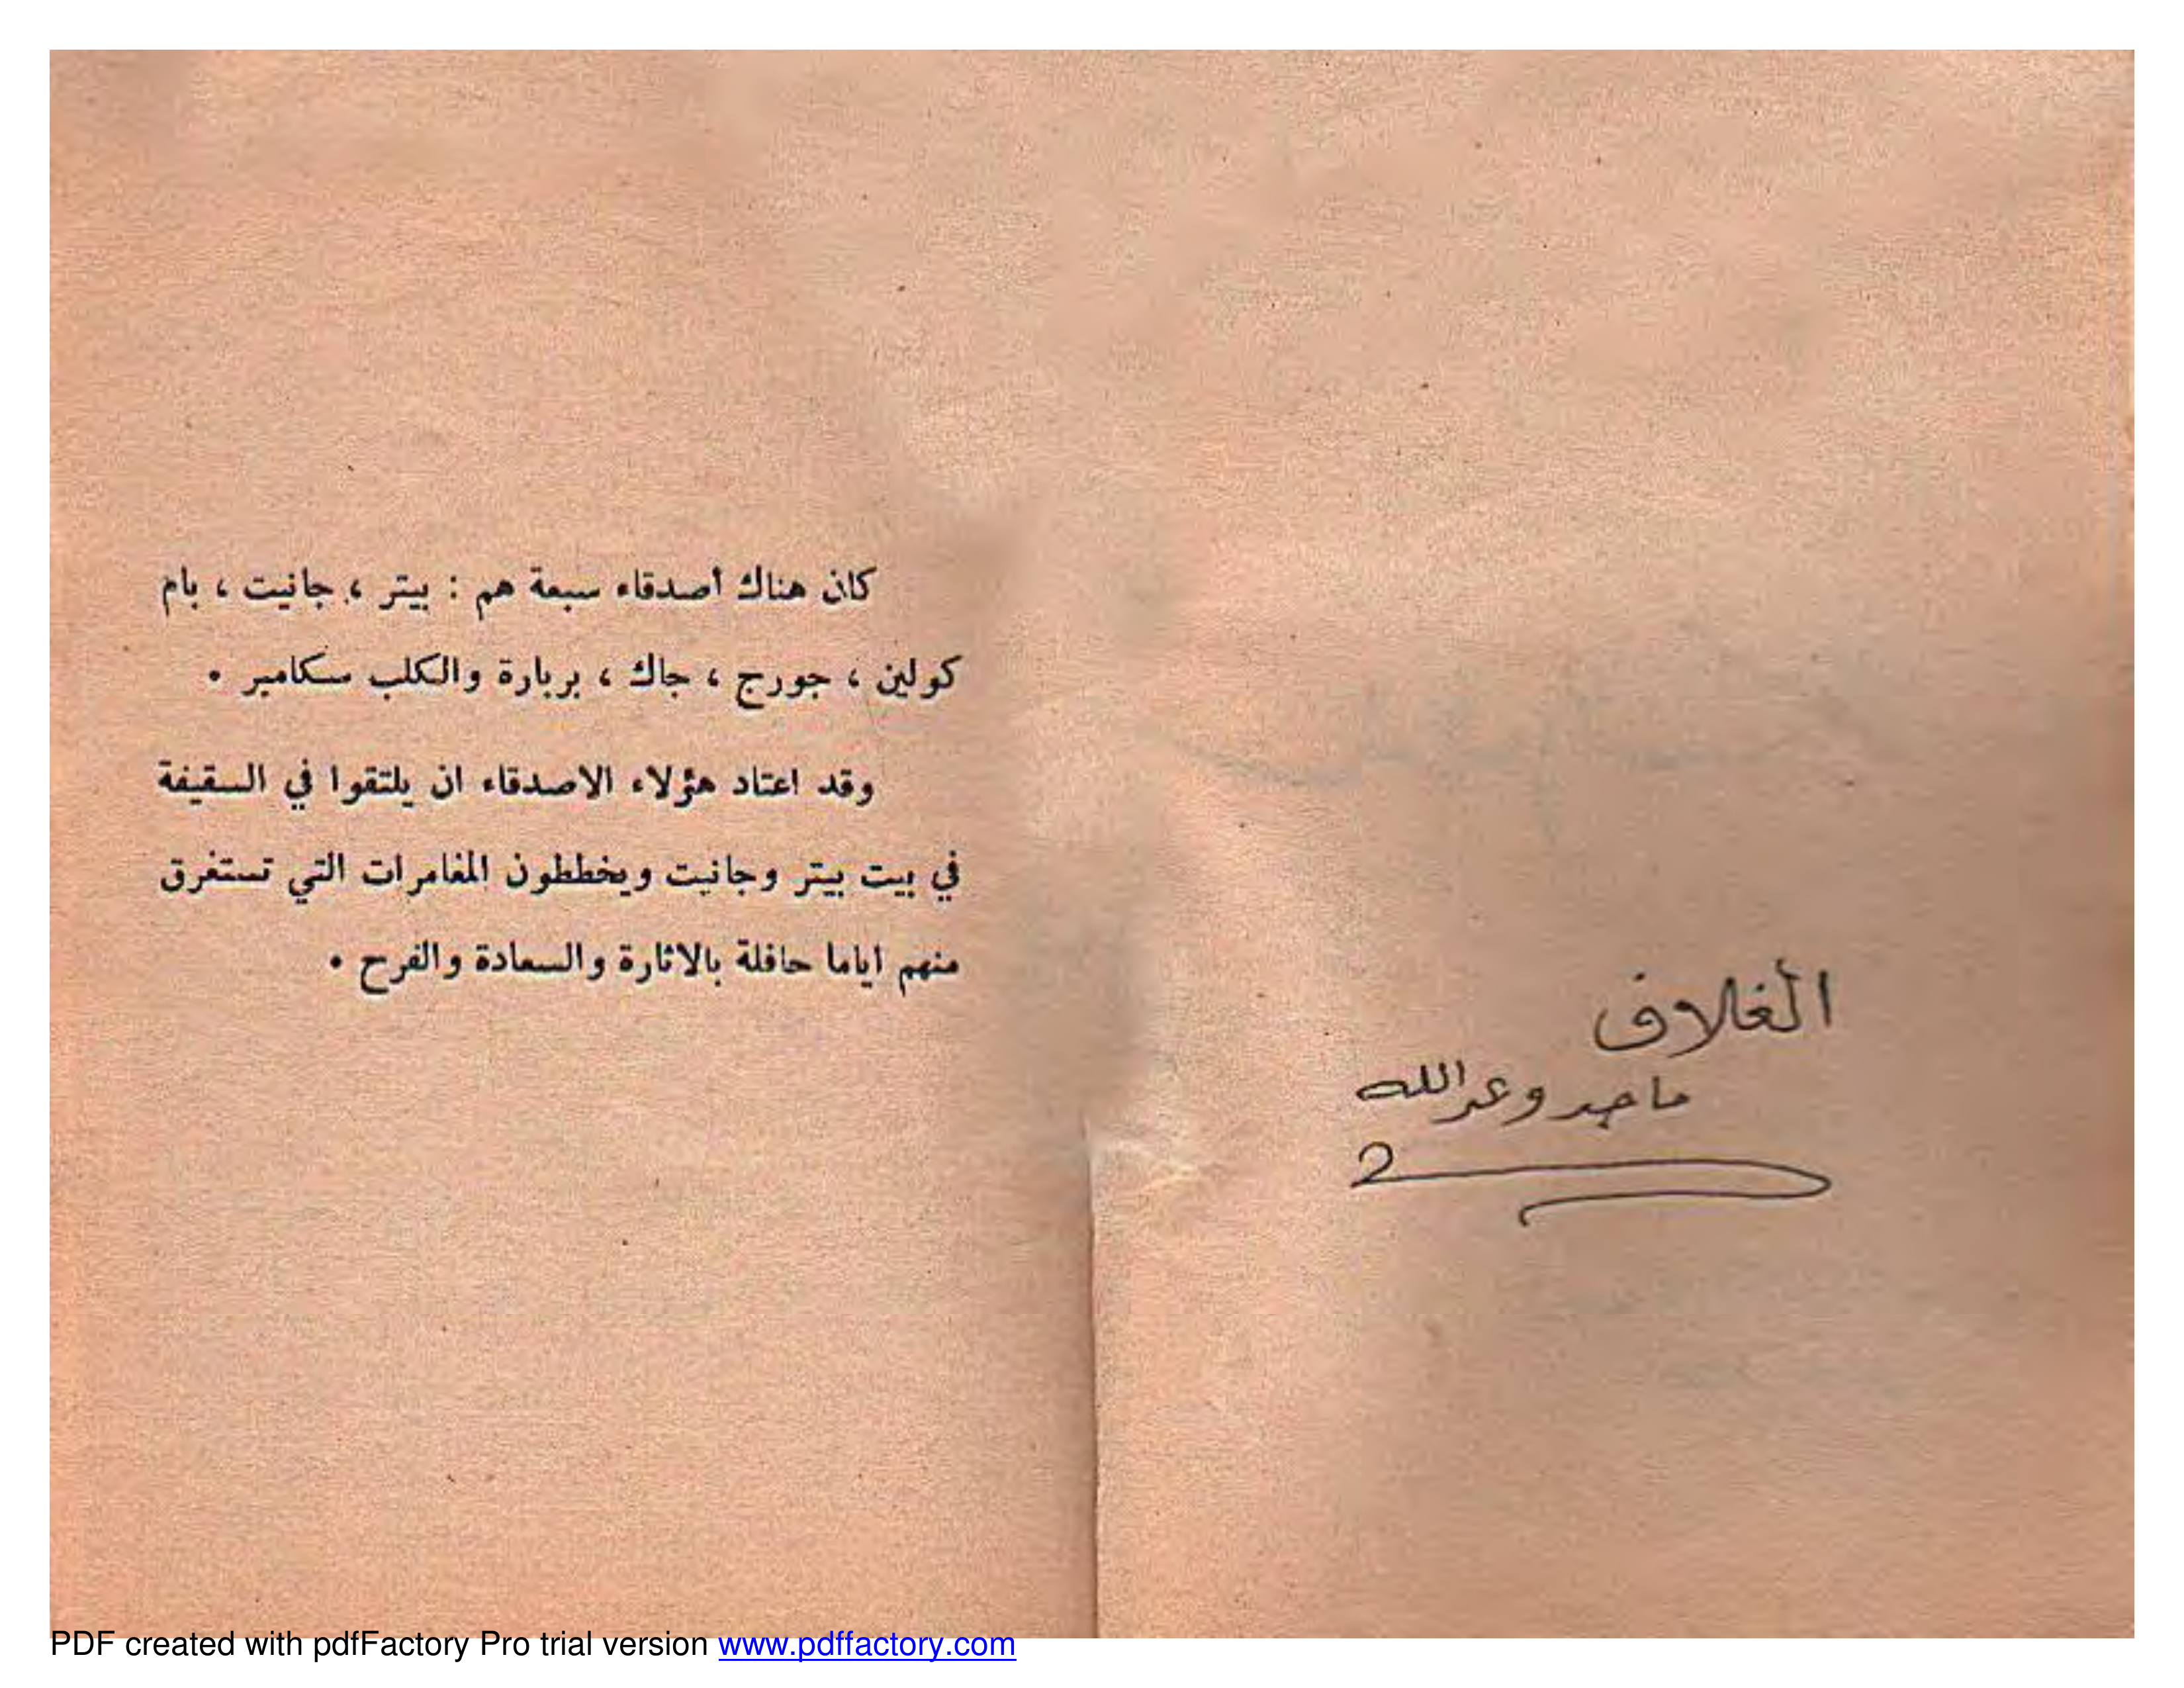 الغلاف
ماجد وعبدالله
كان هناك أصدقاء سبعة هم : بيتر ، جانيت ، بام
كولين ، جورج ، جاك ، بربارة والكلب سكامبر .
وقد اعتاد هؤلاء الاصدقاء ان يلتقوا في السقيفة
في بيت بيتر وجانيت ويخططون المغامرات التي تستغرق
منهم اياما حافلة بالاثارة والسعادة والفرح .
PDF created with pdfFactory Pro trial version www.pdffactory.com